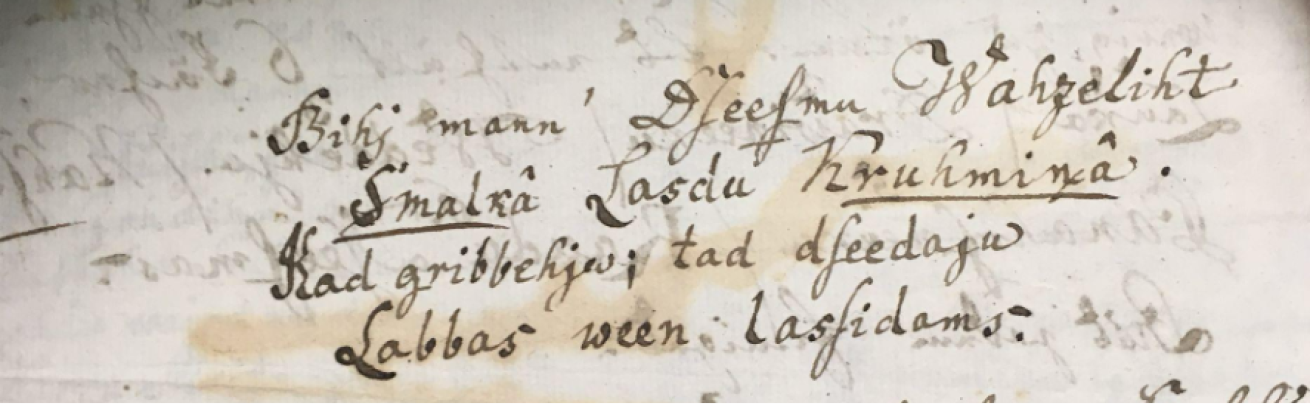 Bihj mann' Dſeeſmu Wahzeliht
Smalkâ Lasdu Kruhmiņâ.
Kad gribbehju; tad dſeedaju
Labbas ween laſſidams.